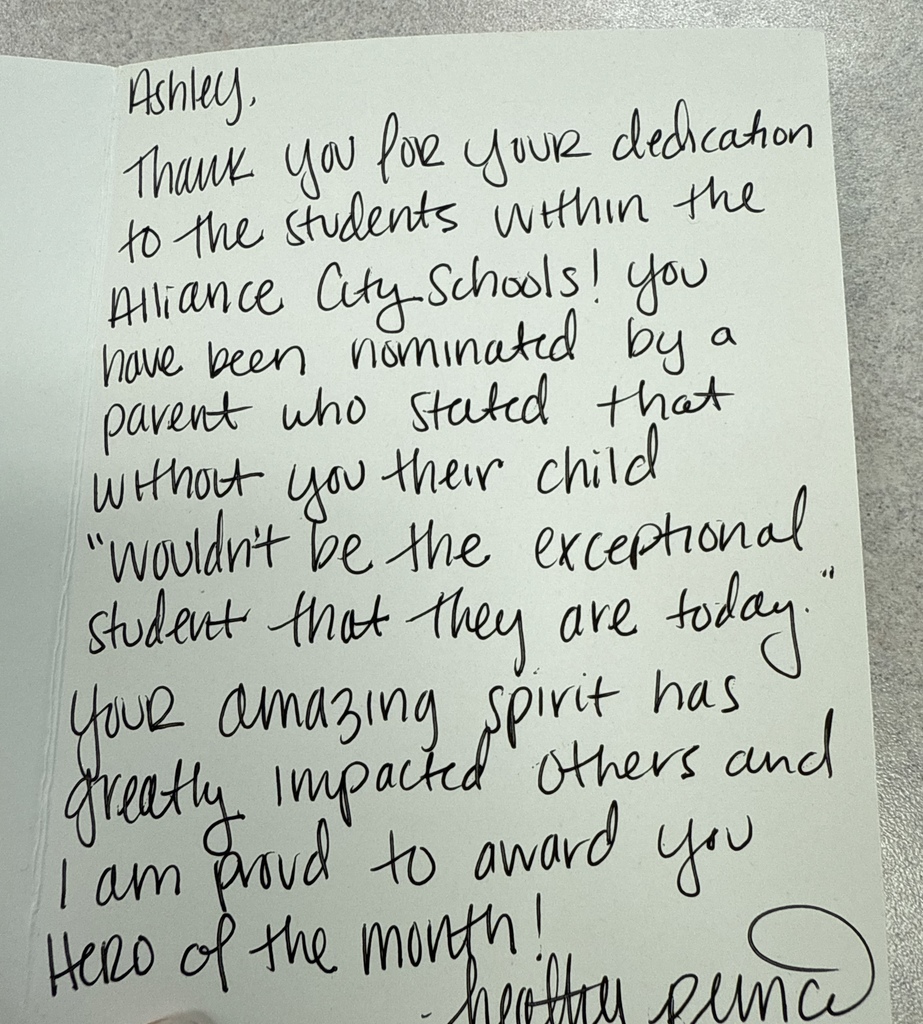 Ashley,
Thank you for your dedication
to the students within the
Alliance City Schools! you
have been nominated by a
parent who stated that
without you their child
"wouldn't be the exceptional
student that they are today."
your amazing spirit has
greatly impacted others and
I am proud to award you
Hero of the month!
- heather